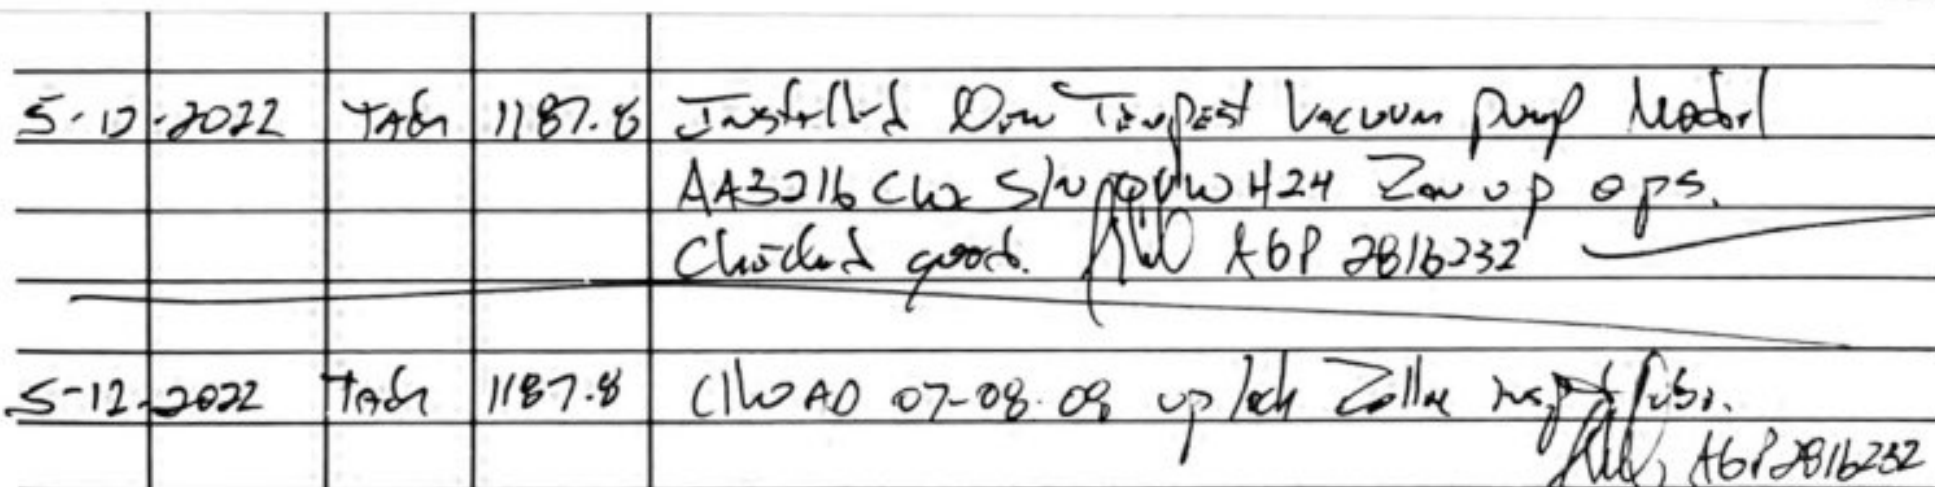 5-12-2022 Tach 1187.8 Installed New Tempest Vacuum pump Model
AA3216CW S/N H24 up ops.
Checked good. A&P 2816232
5-12-2022 Tach 1187.8 C/W AD 07-08-08 up lock
A&P 2816232